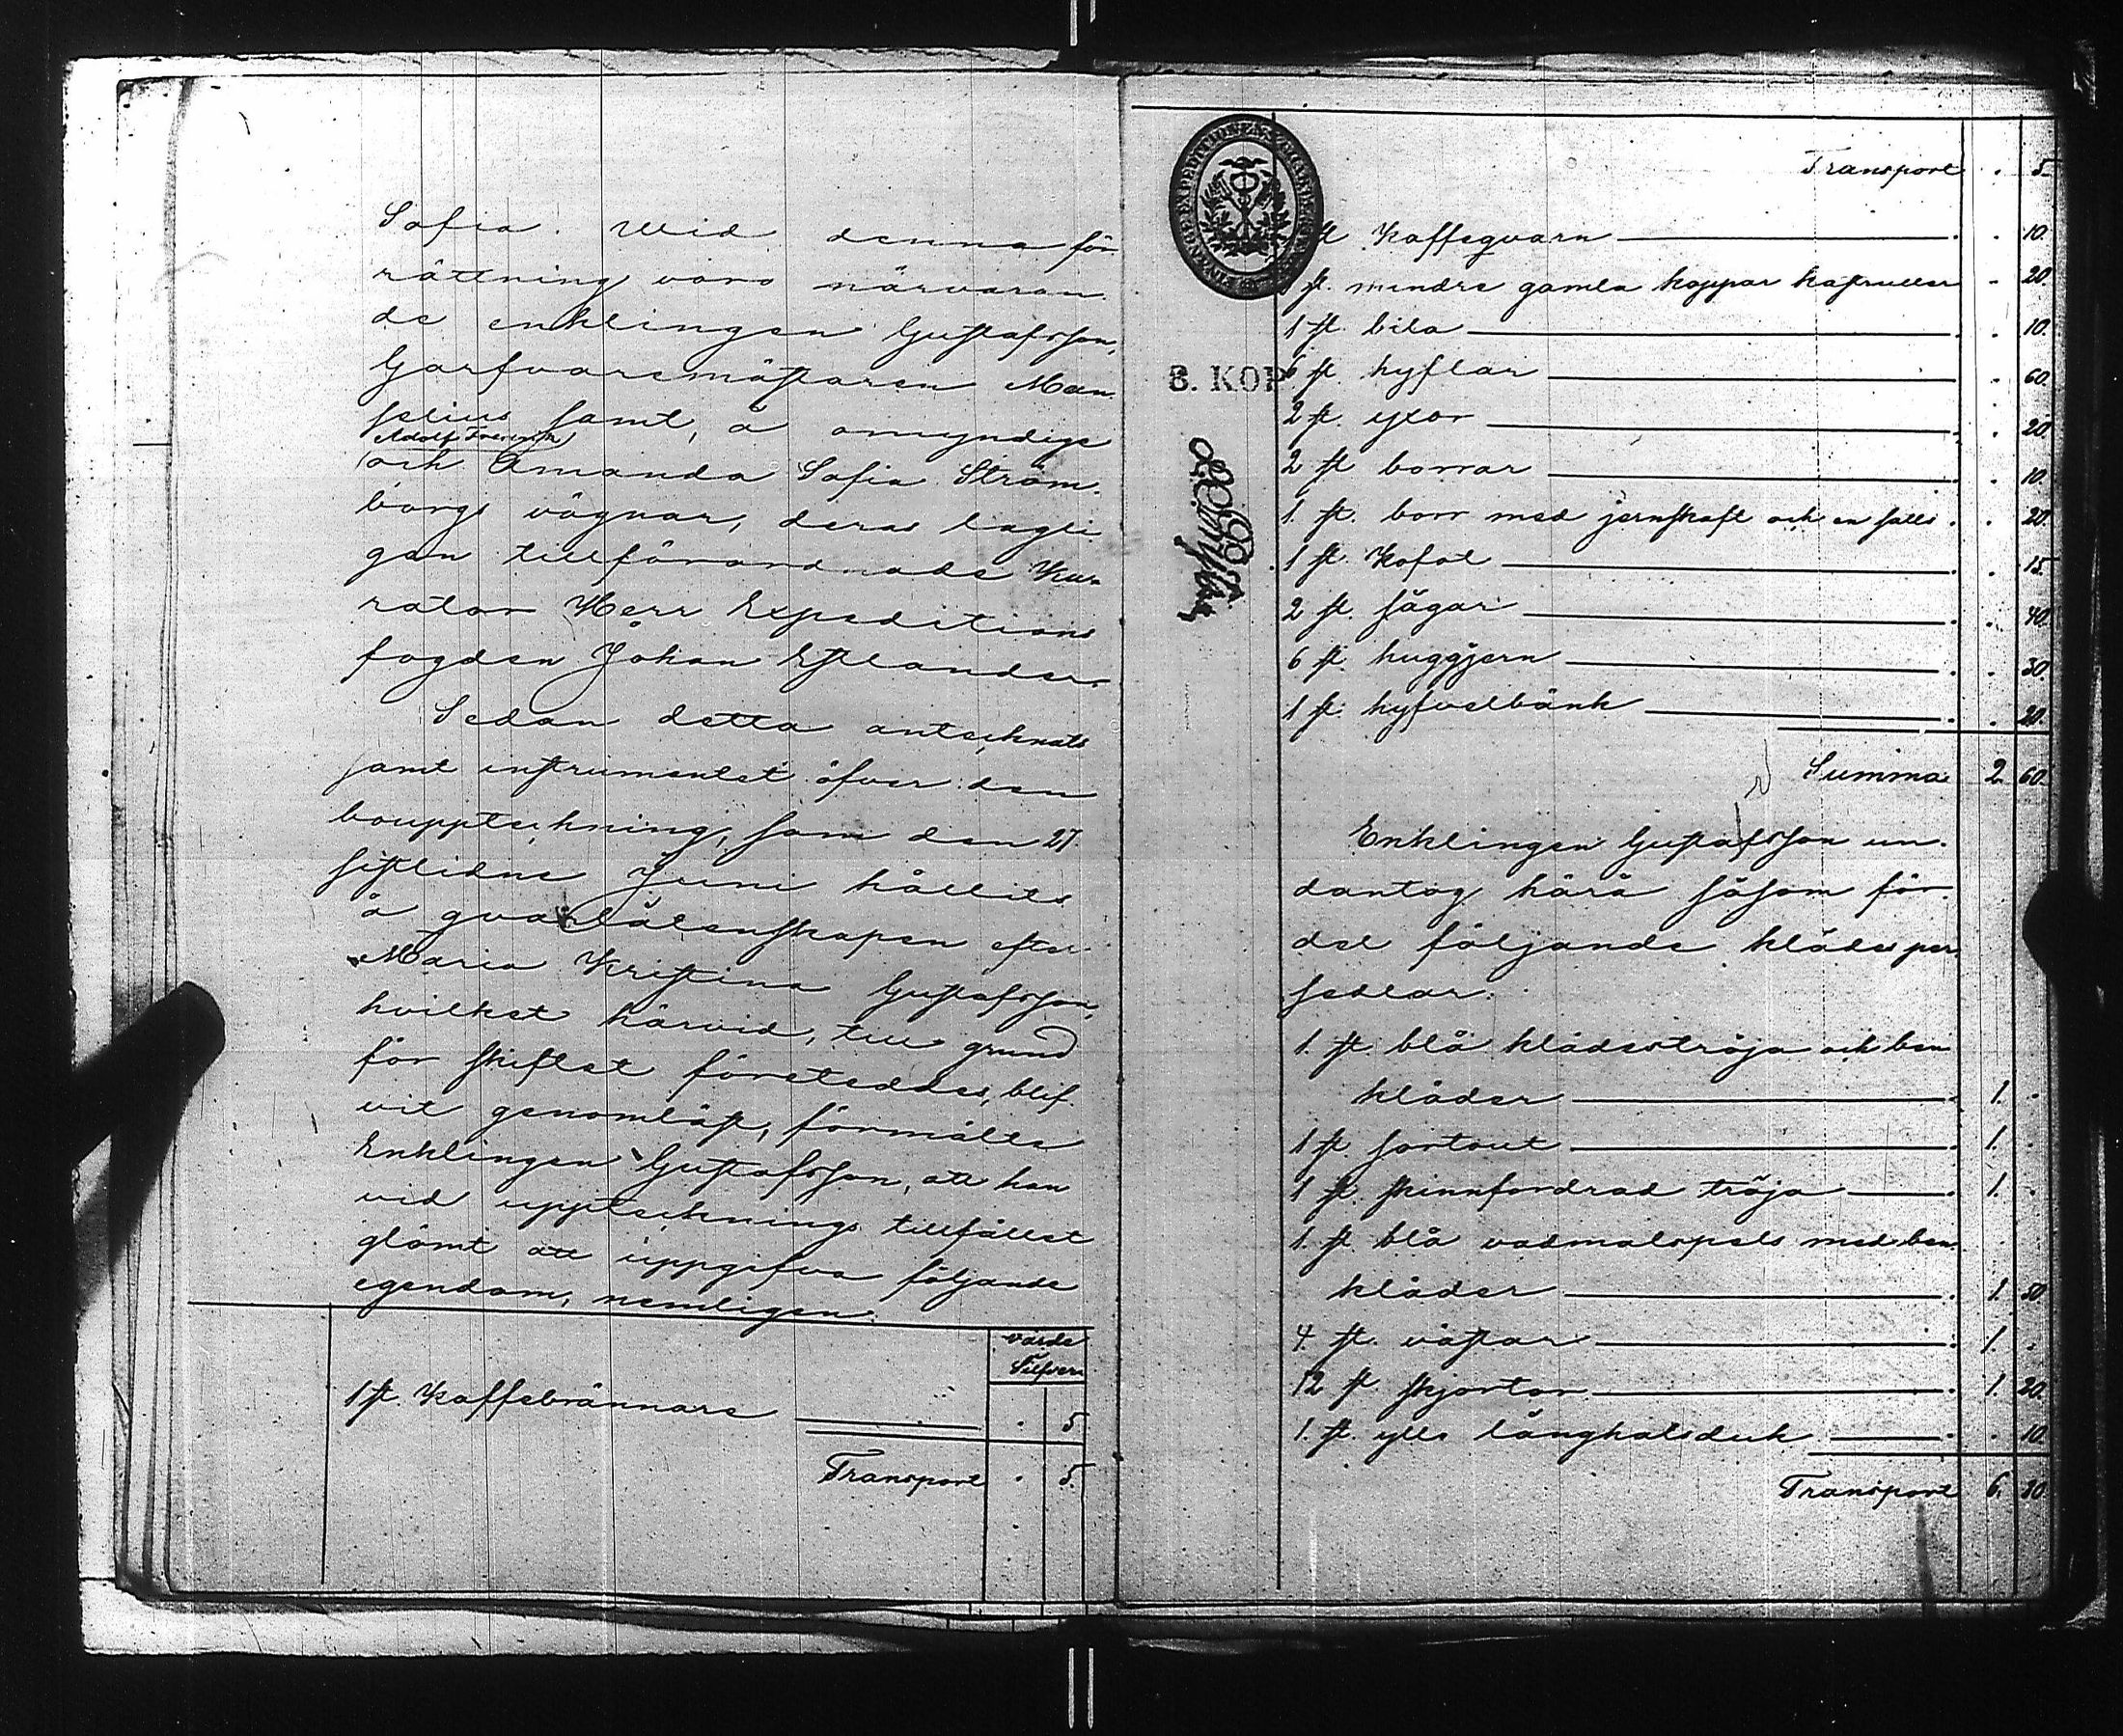 Sofia. Wid denna för-
rättning voro närvaran-
de enklingen Gustafsson,
Garfvaremästaren Man-
selius samt, å omyndige
Adolf Fredrik
och Amanda Sofia Ström-
bergs vägnar, deras lagli-
gen tillförordnade Ku-
rator Herr Expeditions
fogden Johan Estlander.
Sedan detta antecknats
samt instrumentet öfver den
bouppteckning, som den 27
sistlidne Juni hållits
å qvarlåtenskapen efter
Maria Kristina Gustafsson,
hvilket härvid, till grund
för skiftet företeddes, blif-
vit genomläst, förmälte
Enklingen Gustafsson, att han
vid upptecknings tillfället
glömt att uppgifva följande
egendom, nemligen:
värde
Silfver
1 st. Kaffebrännare . 5.
Transport . 5.
Transport . 5.
st Kaffeqvarn . 10.
st. mindre gamla koppar kastruller . 20.
1 st. bila . 10.
8. KOP
6 st. hyflar . 60.
2 st. yxor . 20.
2 st borrar . 10.
1. st. borr med jernskaft och en falls . 20.
1 st. Kofot . 15.
2 st. sågar . 40.
6 st. huggjern . 30.
1 st. hyfvelbänk . 20.
Summa 2 60.
Enklingen Gustafsson un-
dantog härå såsom för-
del följande klädesper-
sedlar:
1. st. blå klädeströja och ben-
kläder 1. .
1 st. sortout 1. .
1 st. skinnfordrad tröja 1. .
1. st. blå vadmalspels med ben-
kläder 1. 50
4. st. västar 1. .
12 st. skjortor 1. 20.
1. st. ylle långhalsduk . 10.
Transport 6. 80.